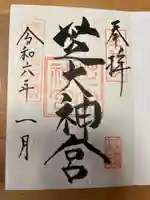 奉拝
芝大神宮
令和六年
一月